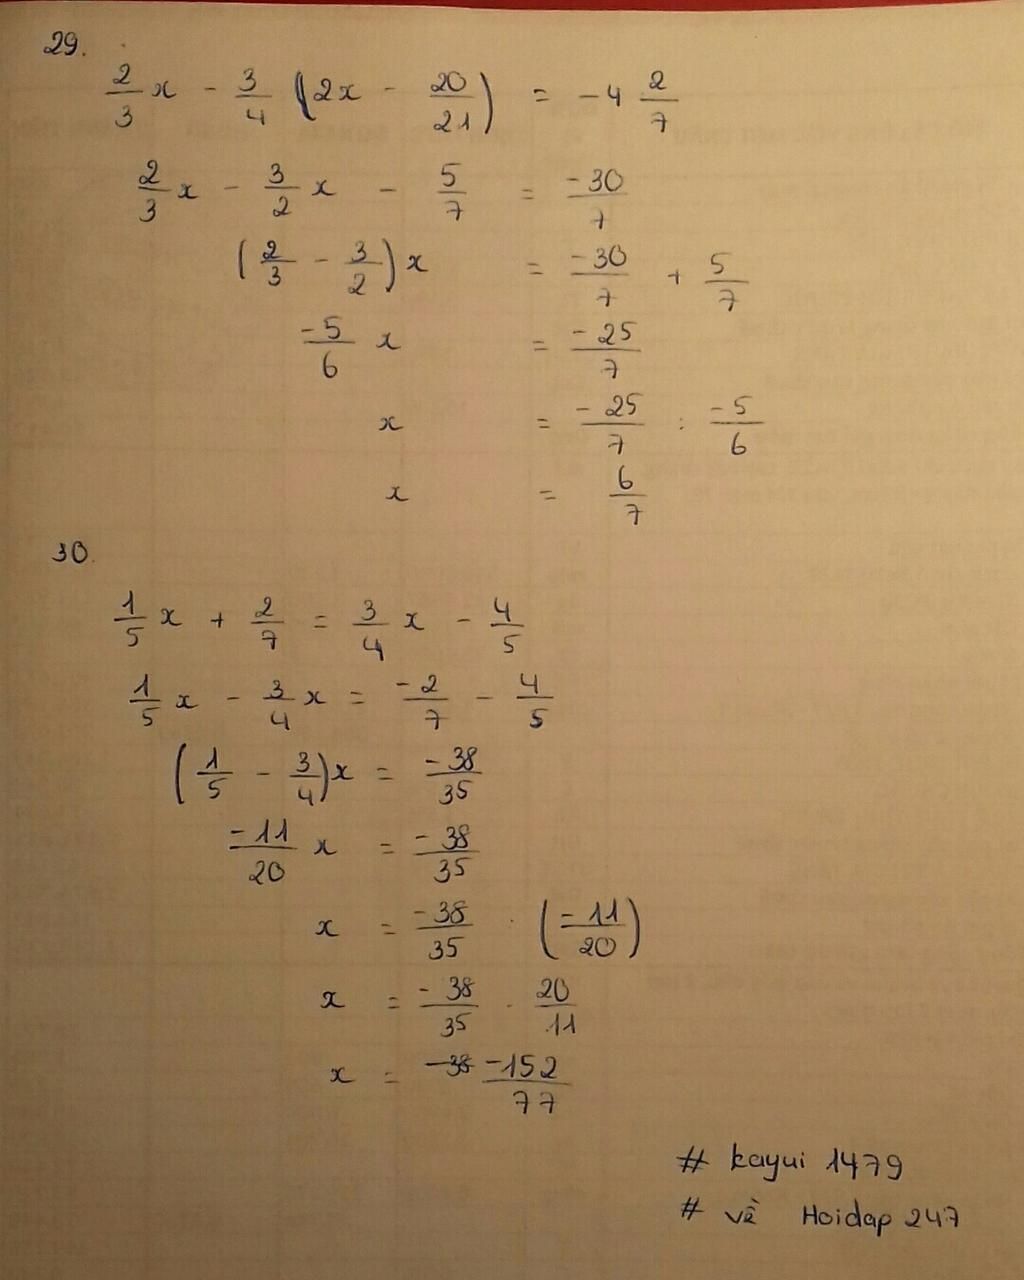 29.
2/3 x - 3/4 (2x - 20/21) = -4 2/7
2/3 x - 3/2 x - 5/7 = -30/7
(2/3 - 3/2) x = -30/7 + 5/7
-5/6 x = -25/7
x = -25/7 : -5/6
x = 6/7
30.
1/5 x + 2/7 = 3/4 x - 4/5
1/5 x - 3/4 x = -2/7 - 4/5
(1/5 - 3/4) x = -38/35
-11/20 x = -38/35
x = -38/35 . (-11/20)
x = -38/35 . 20/11
x = -38 -152/77
# kayui 1479
# về Hoidap 247